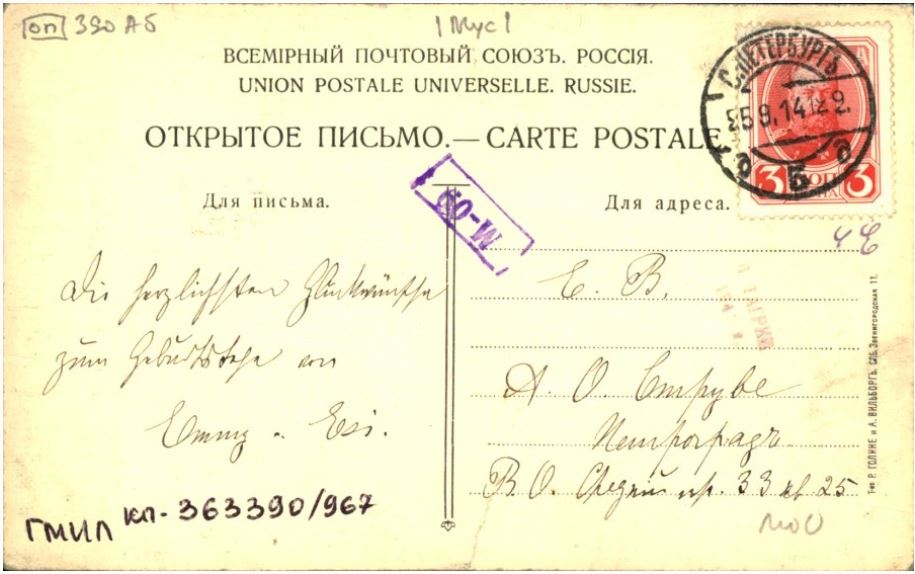 оп 390 Аб
|Мус|
ВСЕМІРНЫЙ ПОЧТОВЫЙ СОЮЗЪ. РОССІЯ.
UNION POSTALE UNIVERSELLE. RUSSIE.
ОТКРЫТОЕ ПИСЬМО.—CARTE POSTALE.
С.ПЕТЕРБУРГЪ
25 9.14 12 9.
3 КОП 3
Для письма.
Для адреса.
М-09
Die herzlichsten Glückwünsche
zum Geburtstage von
Emmy
Е. В.
А. О. Струве
Петроградъ
В. О. Средній пр. 33 кв 25
Тип. Р. ГОЛИКЕ и А. ВИЛЬБОРГЪ. СПБ. Звенигородская 11.
ГМИЛ КП-363390/967